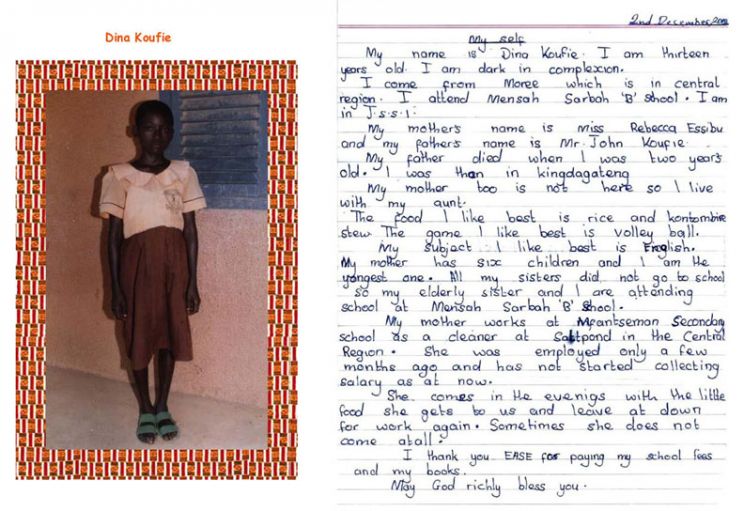 Dina Koufie
2nd December, 2002
My self
My name is Dina Koufie. I am thirteen
years old. I am dark in complexion.
I come from Moree which is in central
region. I attend Mensah Sarbah 'B' School. I am
in J.S.S.1.
My mother's name is miss Rebecca Essibu
and my father's name is Mr. John Koufie.
My father died when I was two years
old. I was than in kingdagateng
My mother too is not here so I live
with my aunt.
The food I like best is rice and kontombire
stew The game I like best is volley ball.
My subject I like best is English.
My mother has six children and I am the
yongest one. All my sisters did not go to school
so my elderly sister and I are attending
school at Mensah Sarbah 'B' School.
My mother works at Mfantseman Secondary
school as a cleaner at Saltpond in the Central
Region. She was employed only a few
months ago and has not started collecting
salary as at now.
She comes in the evenigs with the little
food she gets to us and leave at down
for work again. Sometimes she does not
come atall.
I thank you EASE for paying my school fees
and my books.
May God richly bless you.